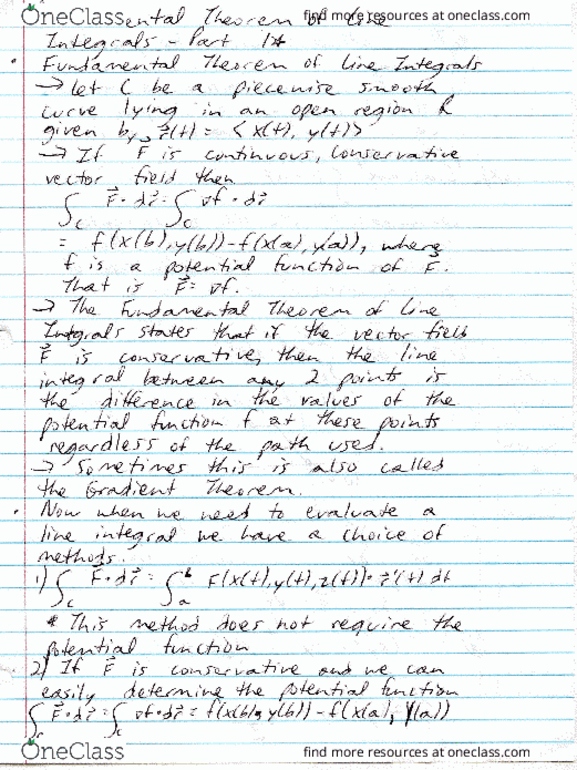 OneClass
find more resources at oneclass.com
ental Theorem of Line
Integrals - Part 1*
• Fundamental Theorem of Line Integrals
→ Let C be a piecewise smooth
curve lying in an open region R
given by r⃗(t) = <x(t), y(t)>
→ If F is continuous, conservative
vector field then
∫_C F⃗·dr⃗ = ∫_C ∇f·dr⃗
= f(x(b), y(b)) - f(x(a), y(a)), where
f is a potential function of F⃗.
That is F⃗ = ∇f.
→ The Fundamental Theorem of Line
Integrals states that if the vector field
F⃗ is conservative, then the line
integral between any 2 points is
the difference in the values of the
potential function f at these points
regardless of the path used.
→ Sometimes this is also called
the Gradient Theorem.
• Now when we need to evaluate a
line integral we have a choice of
methods.
1) ∫_C F⃗·dr⃗ = ∫_a^b F(x(t), y(t), z(t))·r⃗'(t) dt
* This method does not require the
potential function
2) If F⃗ is conservative and we can
easily determine the potential function
∫_C F⃗·dr⃗ = ∫_C ∇f·dr⃗ = f(x(b), y(b)) - f(x(a), y(a))
OneClass
find more resources at oneclass.com